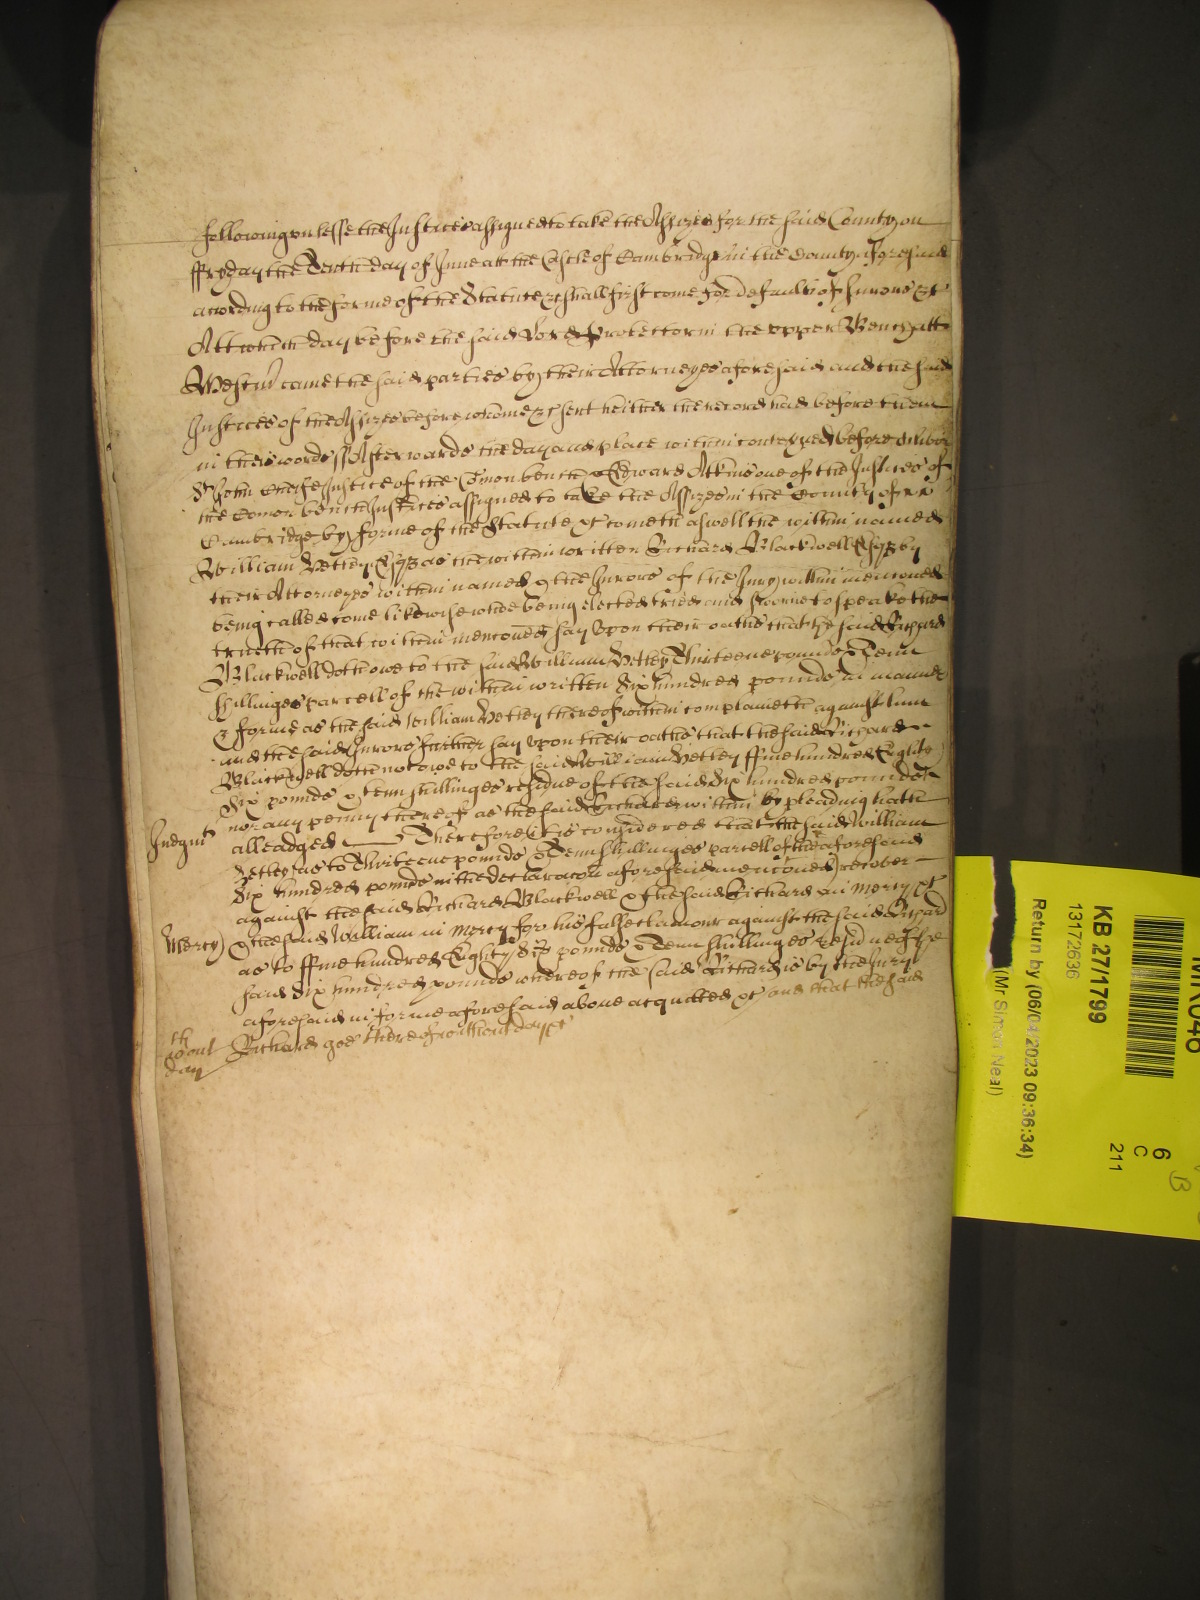 following unlesse the Justices assigned to take the Assizes for the said County on
ffryday the Tenth day of June att the Castle of Cambridge in the County aforesaid
according to the forme of the Statute &c shall first come for default of Jurors &c
Att which day before the said Lord Protector in the upper Bench att
Westmr came the said parties by their Attorneyes aforesaid and the said
Justices of the Assizes before whome &c sent heither the record had before them
in theis words ss Afterwards the day and place within conteyned before Oliver
St John Cheife Justice of the Comon bench & Edward Atkins one of the Justices of
the Comon bench Justices assigned to take the Assizes in the County of
Cambridge by forme of the Statute &c cometh aswell the within named
William Hetley Esqr as the within written Richard Blackwell Esqr by
their Attorneyes within named & the Jurors of the Jury within menconed
being called come likewise whoe being elected tried and sworne to speake the
trueth of that within menconed say upon their oathe that the said Richard
Blackwell doth owe to the said William Hetley Thirteene pounds & Tenn
shillinges parcell of the within written Six hundred pounds in manner
& forme as the said William Hetley thereof within complaineth against him
and the said Jurors further say upon their oathe that the said Richard
Blackwell doth not owe to the said William Hetley ffive hundred Eighty
Six pounds & tenn shillinges residue of the said Six hundred pounds
nor any penny thereof as the said Richard within by pleading hath
alleadged Therefore itis considered that the said William
Judgmt
Hetley as to Thirteene pounds & Tenn shillinges parcell of the aforesaid
Six hundred pounds in the declaracon aforesaid menconed recover
against the said Richard Blackwell & the said Richard in mercy &c
Mercy & the said William in mercy for his false clamour against the said Richard
as to ffive hundred Eighty Six pounds & Tenn shillinges residue of the
said Six hundred pounds whereof the said Richard is by the jury
aforesaid in forme aforesaid above acquitted &c and that the said
Richard goe thereof without day &c
th
gout
day
KB 27/1799
13172636
Return by (06/04/2023 09:36:34)
(Mr Simon Neal)
6
C
211
B